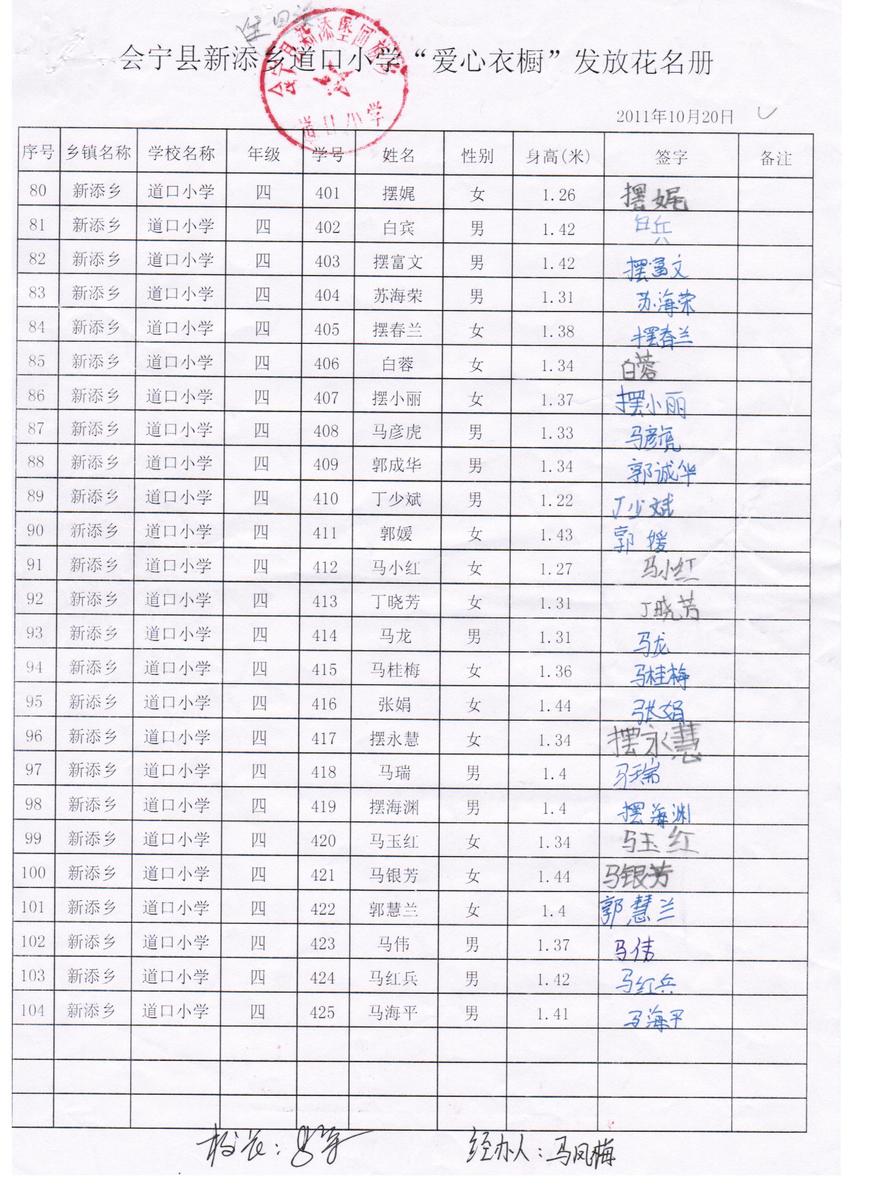 会宁县新添乡道口小学“爱心衣橱”发放花名册
道口小学
2011年10月20日
序号 乡镇名称 学校名称 年级 学号 姓名 性别 身高(米) 签字 备注
80 新添乡 道口小学 四 401 摆娓 女 1.26 摆娓
81 新添乡 道口小学 四 402 白宾 男 1.42 白兵
82 新添乡 道口小学 四 403 摆富文 男 1.42 摆富文
83 新添乡 道口小学 四 404 苏海荣 男 1.31 苏海荣
84 新添乡 道口小学 四 405 摆春兰 女 1.38 摆春兰
85 新添乡 道口小学 四 406 白蓉 女 1.34 白蓉
86 新添乡 道口小学 四 407 摆小丽 女 1.37 摆小丽
87 新添乡 道口小学 四 408 马彦虎 男 1.33 马彦虎
88 新添乡 道口小学 四 409 郭成华 男 1.34 郭诚华
89 新添乡 道口小学 四 410 丁少斌 男 1.22 丁少斌
90 新添乡 道口小学 四 411 郭媛 女 1.43 郭媛
91 新添乡 道口小学 四 412 马小红 女 1.27 马小红
92 新添乡 道口小学 四 413 丁晓芳 女 1.31 丁晓芳
93 新添乡 道口小学 四 414 马龙 男 1.31 马龙
94 新添乡 道口小学 四 415 马桂梅 女 1.36 马桂梅
95 新添乡 道口小学 四 416 张娟 女 1.44 张娟
96 新添乡 道口小学 四 417 摆永慧 女 1.34 摆永慧
97 新添乡 道口小学 四 418 马瑞 男 1.4 马瑞
98 新添乡 道口小学 四 419 摆海渊 男 1.4 摆海渊
99 新添乡 道口小学 四 420 马玉红 女 1.34 马玉红
100 新添乡 道口小学 四 421 马银芳 女 1.44 马银芳
101 新添乡 道口小学 四 422 郭慧兰 女 1.4 郭慧兰
102 新添乡 道口小学 四 423 马伟 男 1.37 马伟
103 新添乡 道口小学 四 424 马红兵 男 1.42 马红兵
104 新添乡 道口小学 四 425 马海平 男 1.41 马海平
校长: 经办人:马凤梅